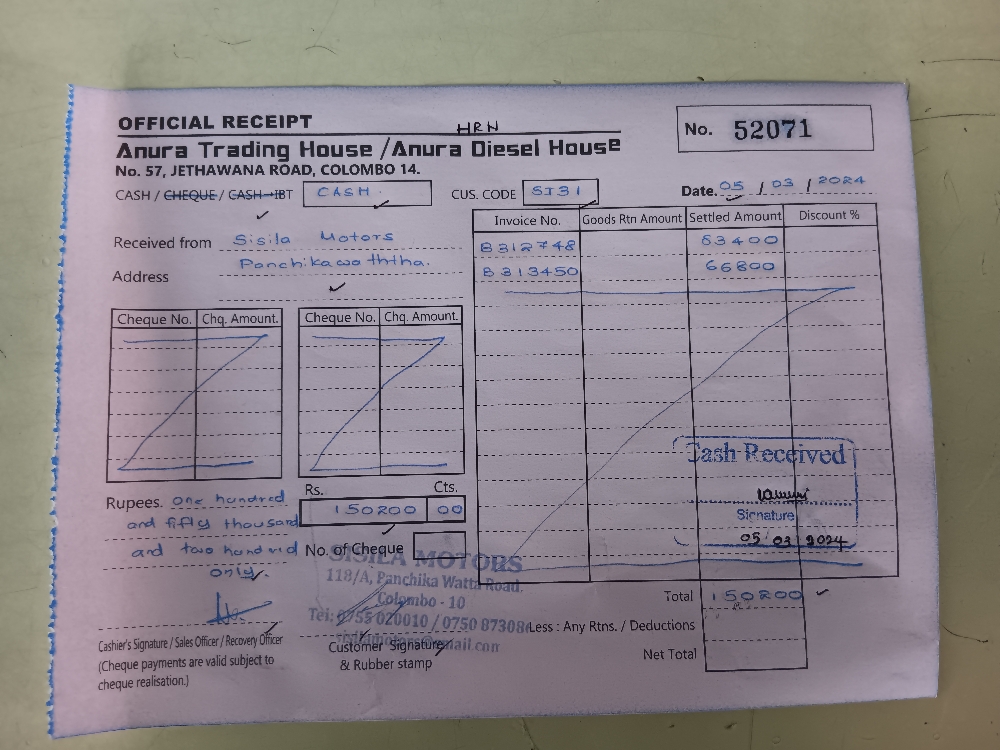 OFFICIAL RECEIPT
HRN
No. 52071
Anura Trading House / Anura Diesel House
No. 57, JETHAWANA ROAD, COLOMBO 14.
CASH / CHEQUE / CASH-IBT CASH CUS. CODE SI31 Date. 05 / 03 / 2024
Invoice No. Goods Rtn Amount Settled Amount Discount %
Received from Sisila Motors
B312748 83400
Address Panchikawaththa.
B313450 66800
Cheque No. Chq. Amount. Cheque No. Chq. Amount.
Cash Received
Signature
05 03 2024
Rupees. one hundred
and fifty thousand
and two hundred
only.
Rs. Cts.
150200 00
No. of Cheque
SISILA MOTORS
118/A, Panchika Watta Road,
Colombo - 10
Tel: 0755 020010 / 0750 87308
Total 150200
Less : Any Rtns. / Deductions
Net Total
Cashier's Signature / Sales Officer / Recovery Officer
(Cheque payments are valid subject to
cheque realisation.)
Customer Signature
& Rubber stamp